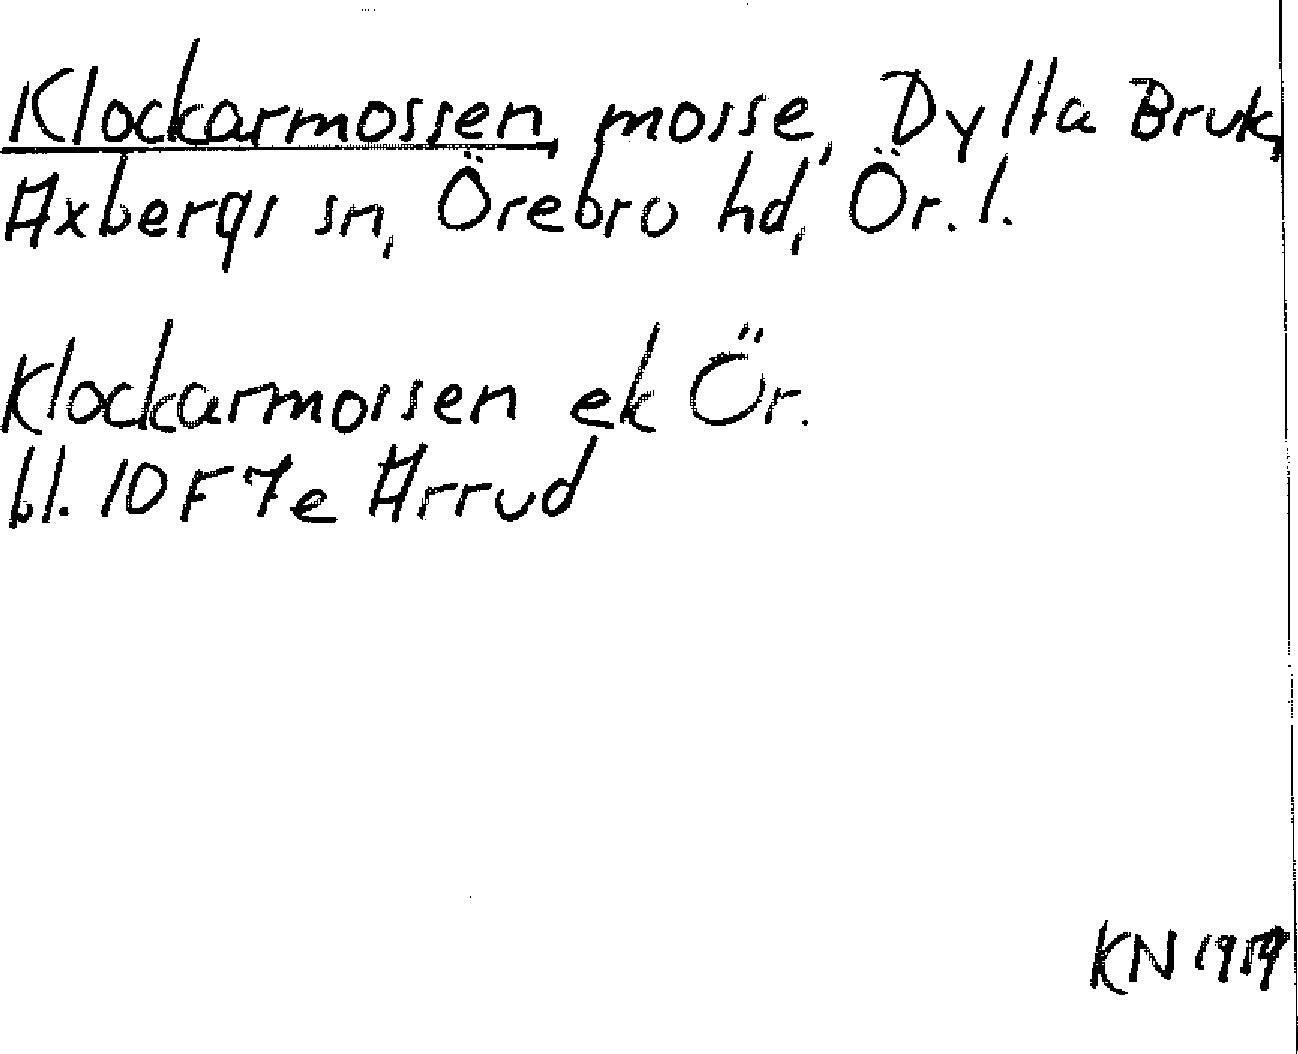 Klockarmossen, mosse, Dylta Bruk,
Axbergs sn, Örebro hd, Ör. l.
Klockarmossen ek Ör.
bl. 10F7e Arrud
KN 1959